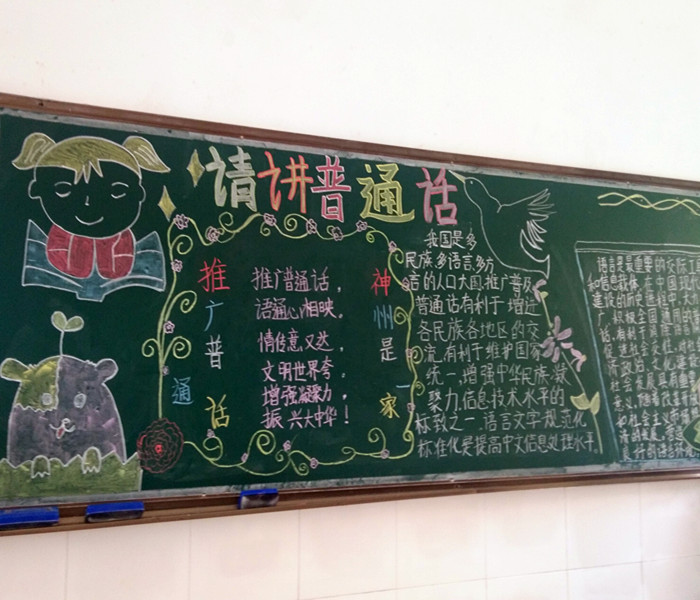 请讲普通话
推广普通话
推广普通话，
语通心相映。
情传意又达，
文明世界夸。
增强凝聚力，
振兴大中华！
神州是一家
我国是多
民族、多语言、多方
言的人口大国，推广普及
普通话有利于增进
各民族各地区的交
流，有利于维护国家
统一，增强中华民族凝
聚力。信息技术水平的
标致之一，语言文字规范化
标准化是提高中文信息处理水平。
语言是最重要的交际工
和信息载体。在中国现
建设的历史进程中，大
积极全国通用的普
话，有利于
促进社会交往，对社
济政治、文化建设
社会发展具有重要
意义。
和社会主义市场